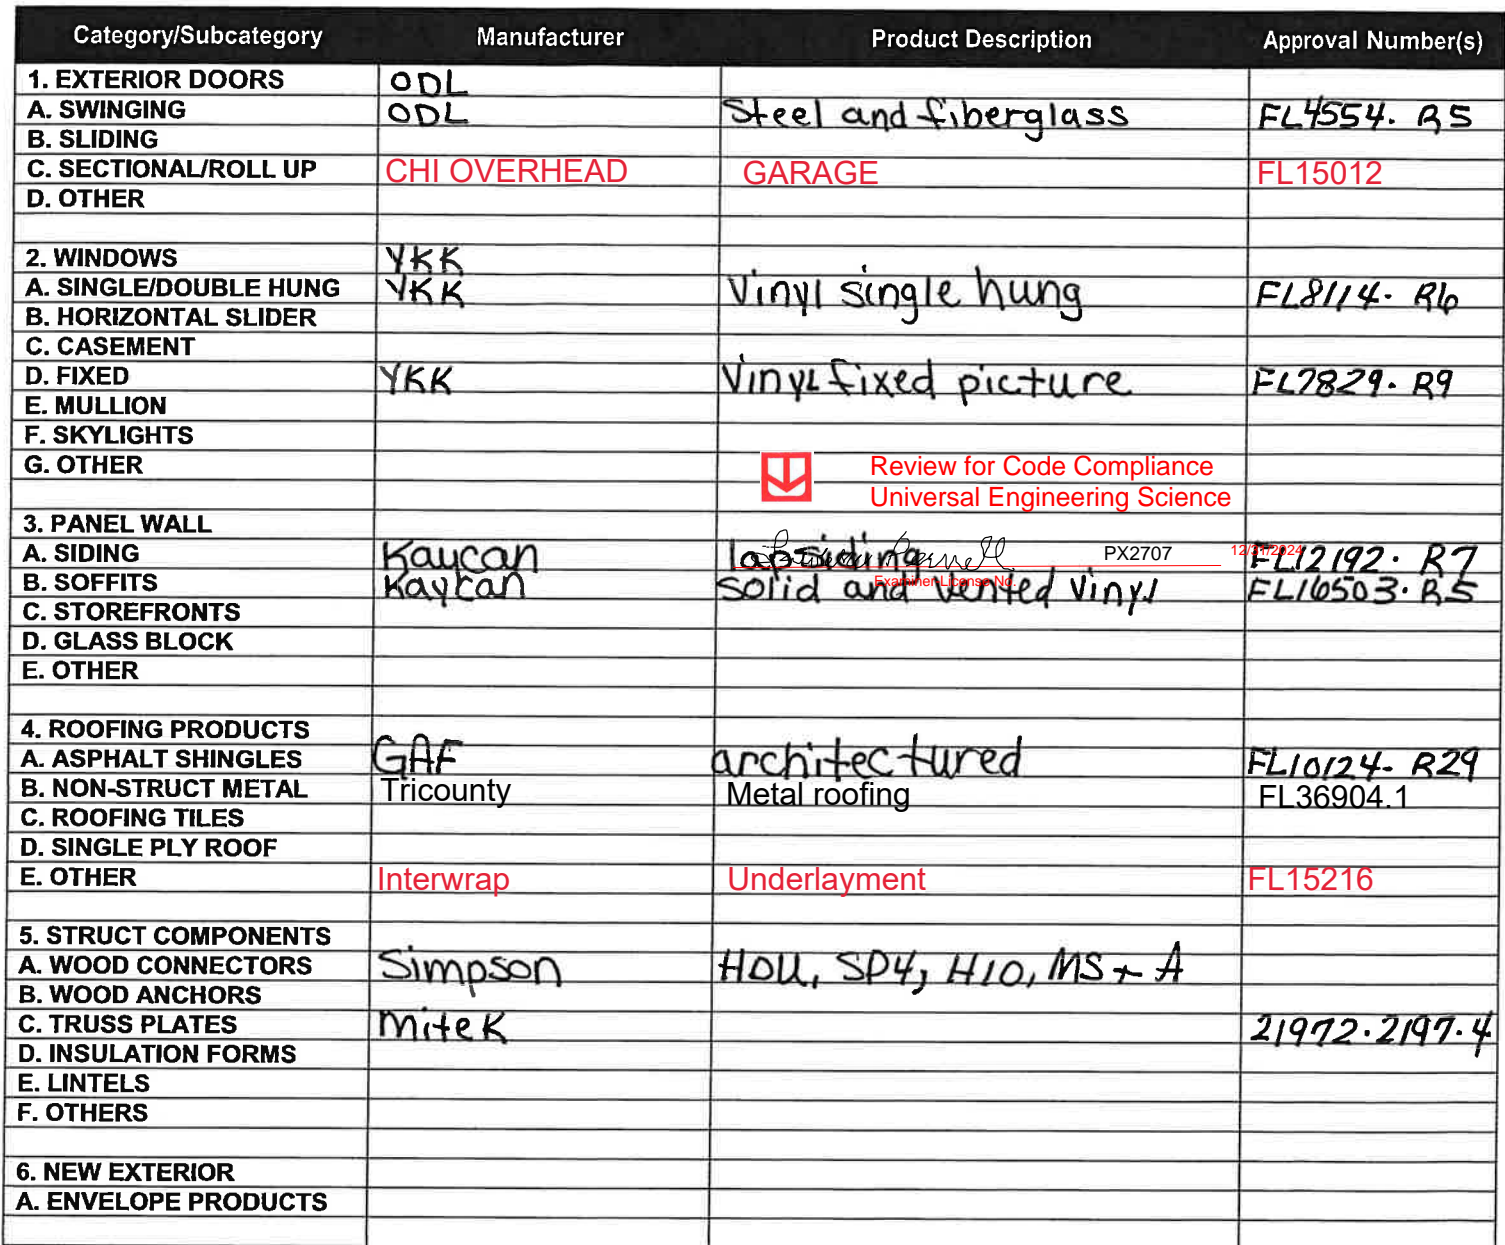 Category/Subcategory Manufacturer Product Description Approval Number(s)
1. EXTERIOR DOORS ODL
A. SWINGING ODL Steel and fiberglass FL4554. R5
B. SLIDING
C. SECTIONAL/ROLL UP CHI OVERHEAD GARAGE FL15012
D. OTHER
2. WINDOWS YKK
A. SINGLE/DOUBLE HUNG YKK Vinyl single hung FL8114. R6
B. HORIZONTAL SLIDER
C. CASEMENT
D. FIXED YKK Vinyl fixed picture FL7829. R9
E. MULLION
F. SKYLIGHTS
G. OTHER Review for Code Compliance
Universal Engineering Science
3. PANEL WALL
A. SIDING Kaycan lapsiding PX2707 12/31/2024 FL12192. R7
Examiner License No.
B. SOFFITS Kaycan solid and vented vinyl FL16503. R5
C. STOREFRONTS
D. GLASS BLOCK
E. OTHER
4. ROOFING PRODUCTS
A. ASPHALT SHINGLES GAF architectured FL10124- R29
B. NON-STRUCT METAL Tricounty Metal roofing FL36904.1
C. ROOFING TILES
D. SINGLE PLY ROOF
E. OTHER Interwrap Underlayment FL15216
5. STRUCT COMPONENTS
A. WOOD CONNECTORS Simpson HDU, SP4, H10, MS+A
B. WOOD ANCHORS
C. TRUSS PLATES MiteK 21972.2197.4
D. INSULATION FORMS
E. LINTELS
F. OTHERS
6. NEW EXTERIOR
A. ENVELOPE PRODUCTS